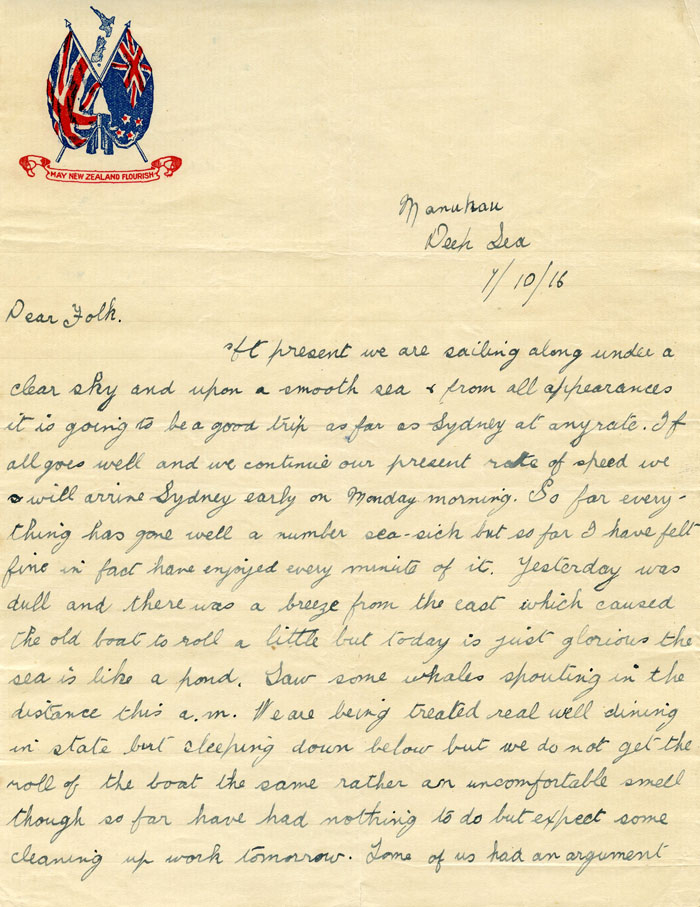 MAY NEW ZEALAND FLOURISH
Manukau
Deep Sea
7/10/16
Dear Folk.
At present we are sailing along under a
clear sky and upon a smooth sea & from all appearances
it is going to be a good trip as far as Sydney at anyrate. If
all goes well and we continue our present rate of speed we
will arrive Sydney early on Monday morning. So far every-
thing has gone well a number sea-sick but so far I have felt
fine in fact have enjoyed every minute of it. Yesterday was
dull and there was a breeze from the east which caused
the old boat to roll a little but today is just glorious the
sea is like a pond. Saw some whales spouting in the
distance this a.m. We are being treated real well dining
in state but sleeping down below but we do not get the
roll of the boat the same rather an uncomfortable smell
though so far have had nothing to do but expect some
cleaning up work tomorrow. Some of us had an argument